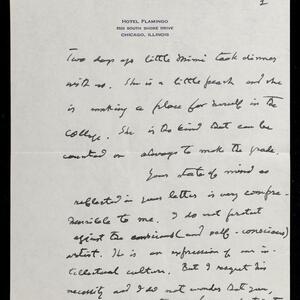 1
HOTEL FLAMINGO
5520 SOUTH SHORE DRIVE
CHICAGO, ILLINOIS
Two days ago little Mimi took dinner
with us. She is a little peach and she
is making a place for herself in the
College. She is the kind that can be
counted on always to make the grade.
Your state of mind as
reflected in your letter is very compre-
hensible to me. I do not protest
against the conscious (and self-conscious)
artist. He is an expression of our in-
tellectual culture. But I regret his
necessity and I do not wonder that you,